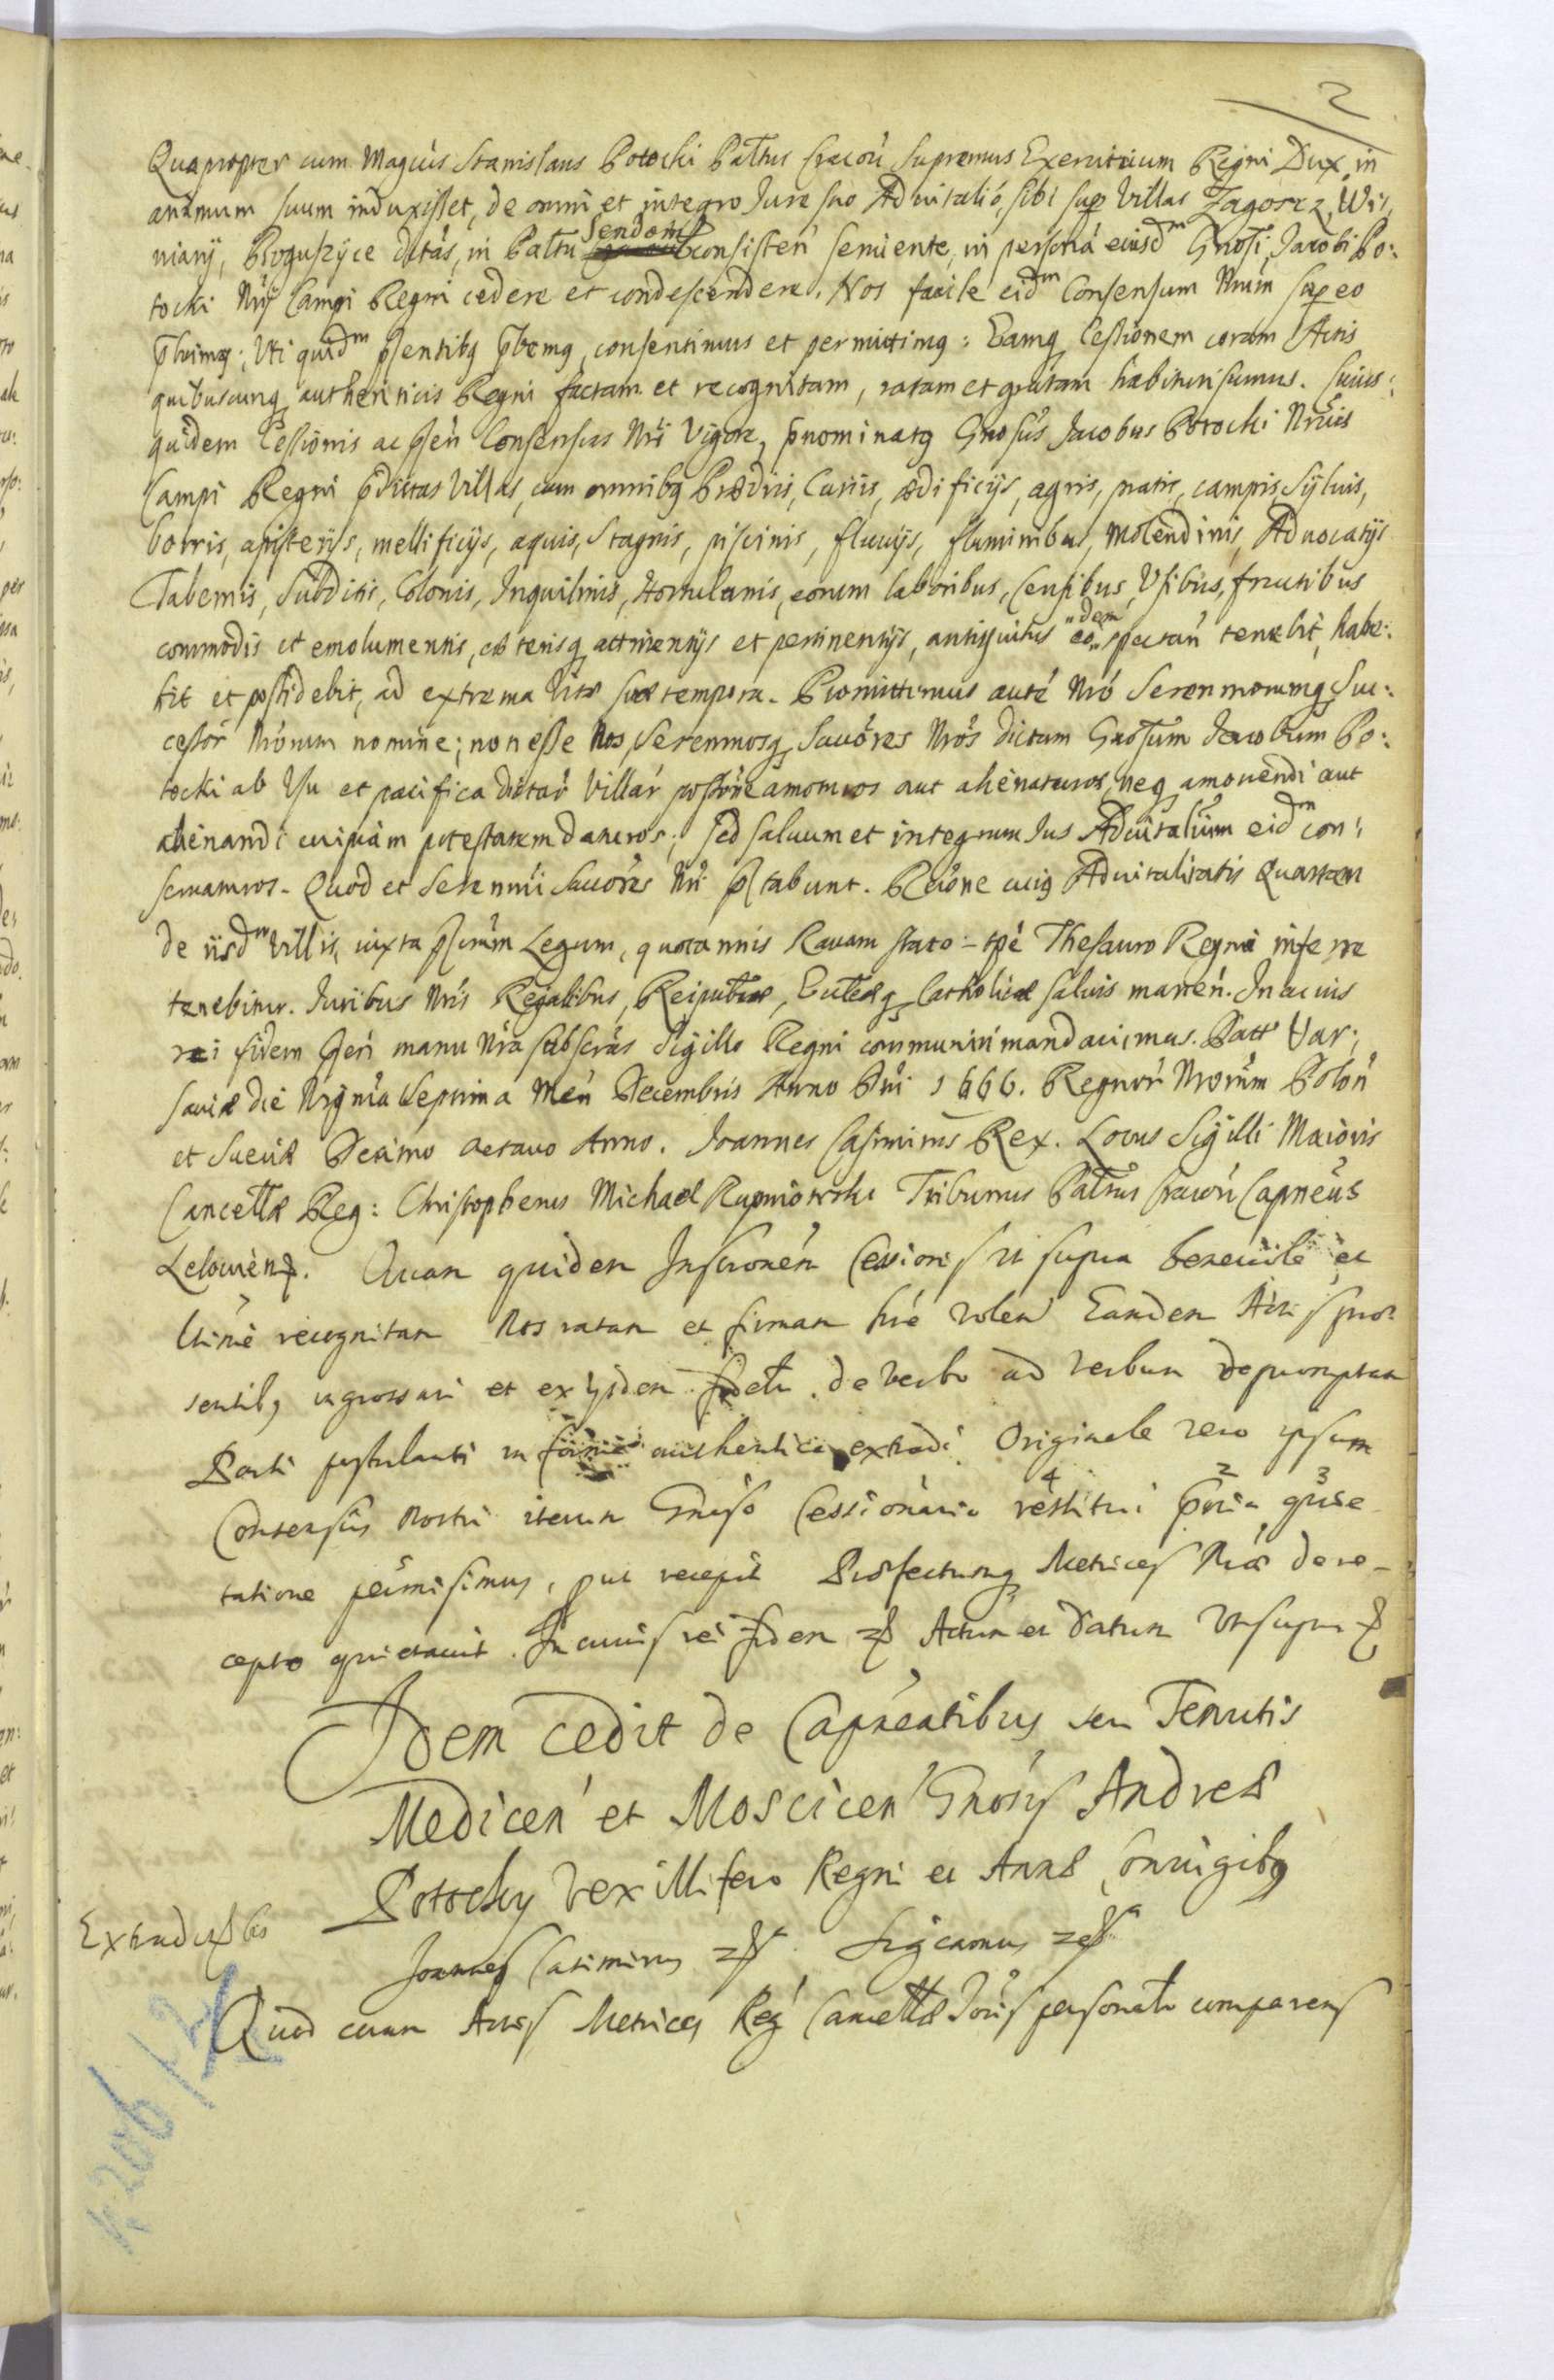 2
Quapropter cum Magcus Stanislaus Potocki Pałtnus Cracoń Supremus Exercituum Regni Dux, in
animum suum induxisset, de omni et integro Jure suo Advitalió, sibi super Villas Zagorze, Wis,
niany, Boguszyce dctás, in Pałtnu Sendomi consisteń seruiente, in personá eiusdm Gnosi Jacobi Po:
tocki Nrij Campi Regni cedere et condescendere. Nos facile eidm Consensum Nrúm super eo
p̄buimq; Uti quidm p̄sentibq p̄bemq, consentimus et permittimq: Eamq Cessionem coram Actis
quibuscunq authenticis Regni factam et recognitam, ratam et gratam habituri sumus. Cuius:
quidem Cessionis ac p̄seń Consensus Nri Vigore, p̄nominatq Gnosus Jacobus Potocki Nrius
Campi Regni p̄dictas Villas, cum omnibq Prædiis, Curiis, ædificijs, agris, pratis, campis, Syluis,
borris, apisterijs, mellificijs, aquis, Stagnis, piscinis, fluuijs, fluminibus, Molendinis, Aduocatijs
Tabernis, Subditis, Colonis, Inquilinis, Hortulanis, eorum laboribus, Censibus, Usibus, fructibus
commodis et emolumentis, cæterisq attinentijs et pertinentijs, antiquitus eodem spectań tenebit, habe:
bit et possidebit, ad extrema Vitæ suæ tempora. Promittimus auté Nró Serenmorumq Suc:
cessor Nrórum nomine; non esse Nos, Serenmosq Succóres Nrós dictum Gnosum Jacobum Po:
tocki ab Usu et pacifica dictar Villar possóne amoturos aut alienaturos, neq amouendi aut
alienandi cuipiam potestatem daturos; sed saluum et integrum Jus Aduitalium eidm con:
seruaturos. Quod et Serenmi Succóres Nri p̄stabunt. Rcióne cuiq Aduitalitatis Quartam
de iisdm Villis, iuxta p̄scrúm Legum, quotannis Rauam stato tpé Thesauro Regni inferre
tenebitur. Juribus Nris Regalibus, Reipublicæ, Ecclæq Catholicæ saluis maneń. In cuius
rei fidem p̄seń manu Nra subscrás Sigillo Regni communiri mandauimus. Datt Var:
sauiæ die Vigesima Septima Meń Decembris Anno Dni 1666. Regnorú Nrorúm Poloń
et Sueciæ Decimo octauo Anno. Joannes Casimirus Rex. Locus Sigilli Maioris
Cancellæ Reg: Christopherus Michael Rupniowski Tribunus Pałtnus Cracoń Capneus
Lelouień. Quam quidem Inscrónem Cessionis ut supra beneuole et
ltime recognitam Nos ratam et firmam hré Volen Eandem Actis præ
sentibq ingrossari et ex ijsdem de verbo ad verbum depromptam
Parti postulanti in forma authentica extradi Originale vero ipsum
Consensus Nostri iterum Gnoso Cessionario 4 restitui 2 3
tatione permisimus, put recepit Præfectumq Metrices Nræ de re-
cepto quietauit. In cuius rei fidem Actum et Datum Ut supra
Idem Cedit de Capneatibus seu Tenutis
Mediceń et Mosciceń Gnosis Andreæ
Potocky Vexillifero Regni et Annæ Coniugibq
Joannes Casimirus Significamus
Quod coram Actis Metrices Reg Cancellæ personalr comparens